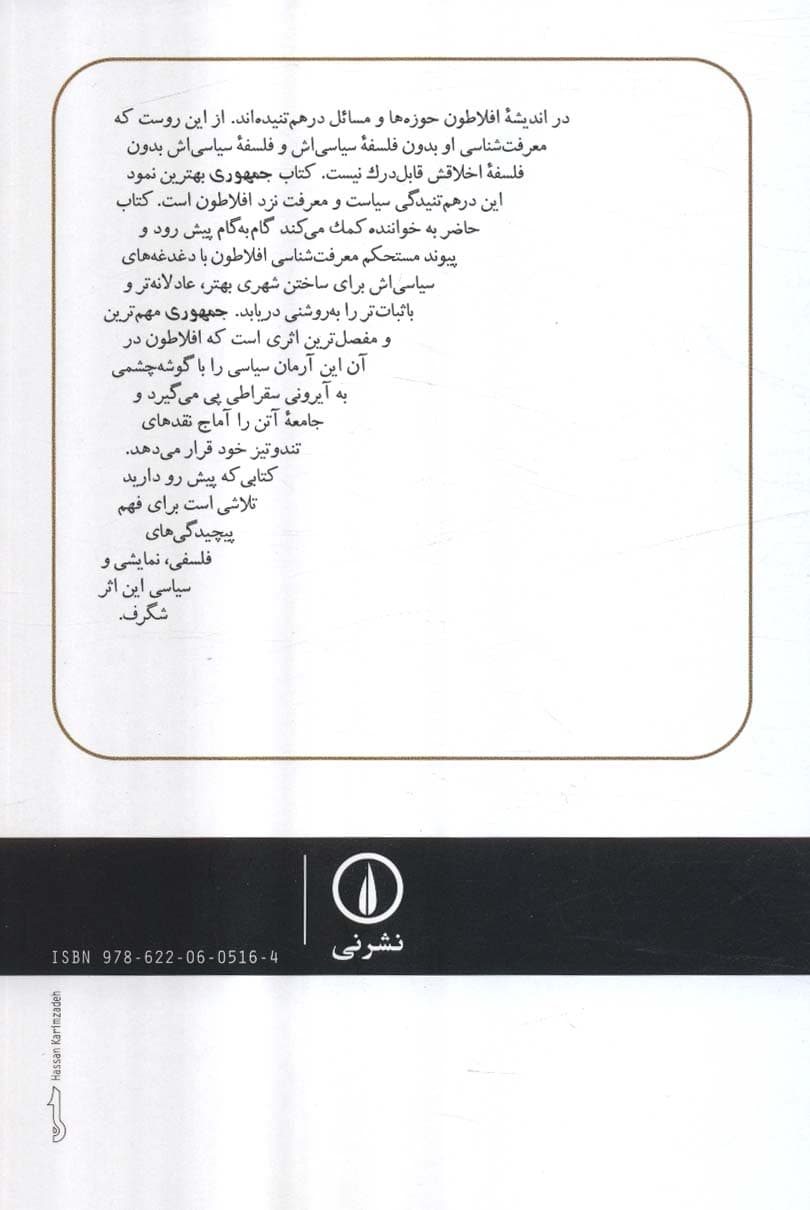 در اندیشهٔ افلاطون حوزه‌ها و مسائل درهم‌تنیده‌اند. از این روست که
معرفت‌شناسی او بدون فلسفهٔ سیاسی‌اش و فلسفهٔ سیاسی‌اش بدون
فلسفهٔ اخلاقش قابل‌درک نیست. کتاب جمهوری بهترین نمود
این درهم‌تنیدگی سیاست و معرفت نزد افلاطون است. کتاب
حاضر به خواننده کمک می‌کند گام‌به‌گام پیش رود و
پیوند مستحکم معرفت‌شناسی افلاطون با دغدغه‌های
سیاسی‌اش برای ساختن شهری بهتر، عادلانه‌تر و
باثبات‌تر را به‌روشنی دریابد. جمهوری مهم‌ترین
و مفصل‌ترین اثری است که افلاطون در
آن این آرمان سیاسی را با گوشه‌چشمی
به آیرونی سقراطی پی می‌گیرد و
جامعهٔ آتن را آماج نقدهای
تندوتیز خود قرار می‌دهد.
کتابی که پیش رو دارید
تلاشی است برای فهم
پیچیدگی‌های
فلسفی، نمایشی و
سیاسی این اثر
شگرف.
نشرنی
ISBN 978-622-06-0516-4
Hassan Karimzadeh